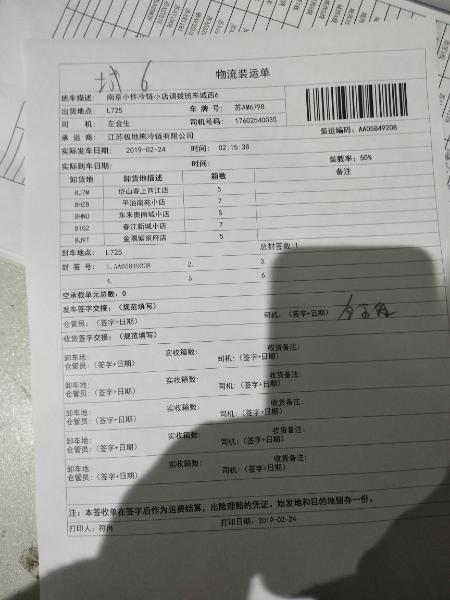 城 6
物流装运单
班车描述: 南京小件冷链小店调拨班车城西6
出货地点: L725 车 牌 号: 苏AM6798
司 机: 左会生 司机号码: 17602540035
承 运 商: 江苏极地熊冷链有限公司 装运编码: AA05849208
实际发车日期: 2019-02-24 时间: 02:15:38
实际到车日期: 时间: 装载率: 50%
卸货地 卸货地描述 箱数 备注
8J7M 岱山春上西江店 5
8HZB 平治南苑小店 7
8HNU 东来奥南城小店 5
8IG2 春江新城小店 7
8J9T 金鼎紫京府店 5
封车地点: L725 总封签数: 1
封 签 号: 1.AA05849208 2. 3.
4. 5 6
空承载单元总数: 0
发车签字交接: (规范填写)
仓管员: (签字+日期) 司机: (签字+日期)
收货签字交接: (规范填写)
卸车地: 实收箱数: 收货备注:
仓管员: (签字+日期) 司机: (签字+日期)
卸车地: 实收箱数: 收货备注:
仓管员: (签字+日期) 司机: (签字+日期)
卸车地: 实收箱数: 收货备注:
仓管员: (签字+日期) 司机: (签字+日期)
卸车地: 实收箱数: 收货备注:
仓管员: (签字+日期) 司机: (签字+日期)
卸车地: 实收箱数: 收货备注:
仓管员: (签字+日期) 司机: (签字+日期)
注: 本签收单在签字后作为运费结算, 出险理赔的凭证。始发地和目的地留存一份。
打印人: 符冉 打印日期: 2019-02-24